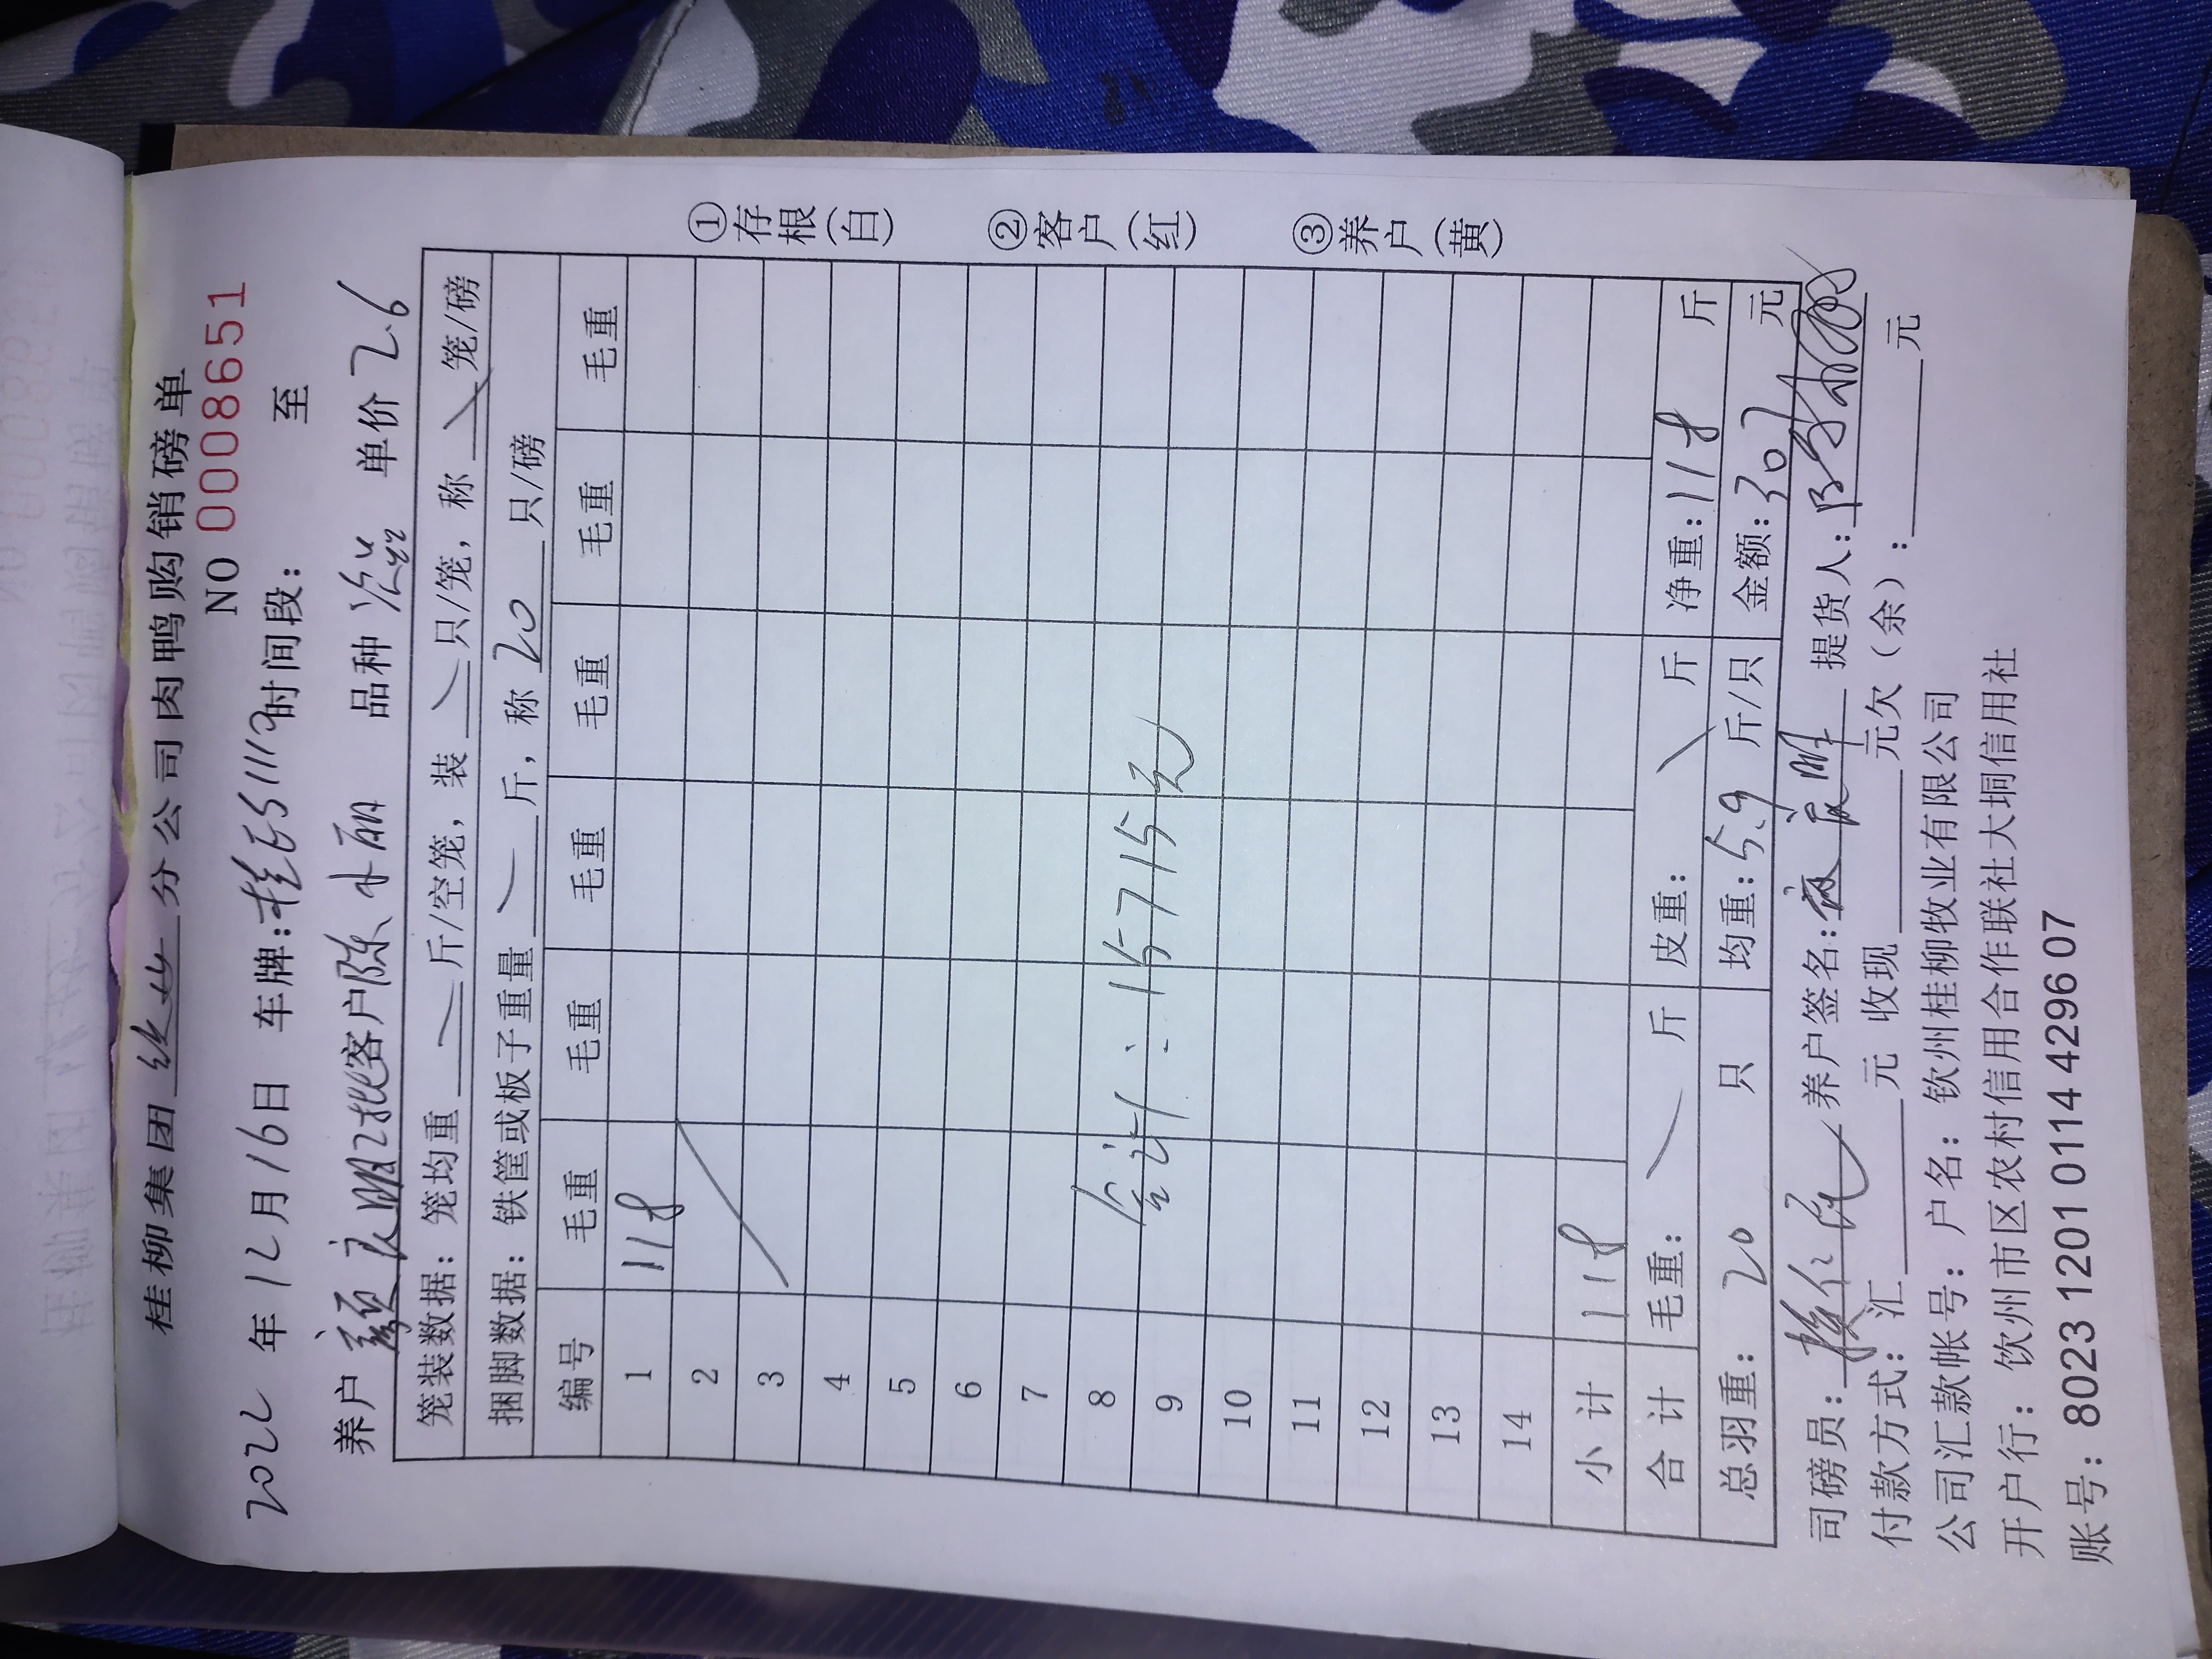 桂柳集团 分公司肉鸭购销磅单
NO 0008651
2022 年 12月16日 车牌:桂E5111 时间段: 至
养户 颜 明2批客户陈 丽 品种 单价 2.6
笼装数据: 笼均重 斤/空笼, 装 只/笼, 称 笼/磅
捆脚数据: 铁筐或板子重量 斤, 称 20 只/磅
编号 毛重 毛重 毛重 毛重 毛重 毛重
1 118
2
3
4
5
6
7
8
合计: 15715元
9
10
11
12
13
14
小 计 118
合 计 毛重: 斤 皮重: 斤 净重: 118 斤
总羽重: 20 只 均重: 5.9 斤/只 金额: 307 元
司磅员: 养户签名: 提货人:
付款方式: 汇 元 收现 元欠(余): 元
公司汇款帐号: 户 名: 钦州桂柳牧业有限公司
开户行: 饮州市区农村信用合作联社大垌信用社
账号: 8023 1201 0114 4296 07
①存根(白)
②客户(红)
③养户(黄)